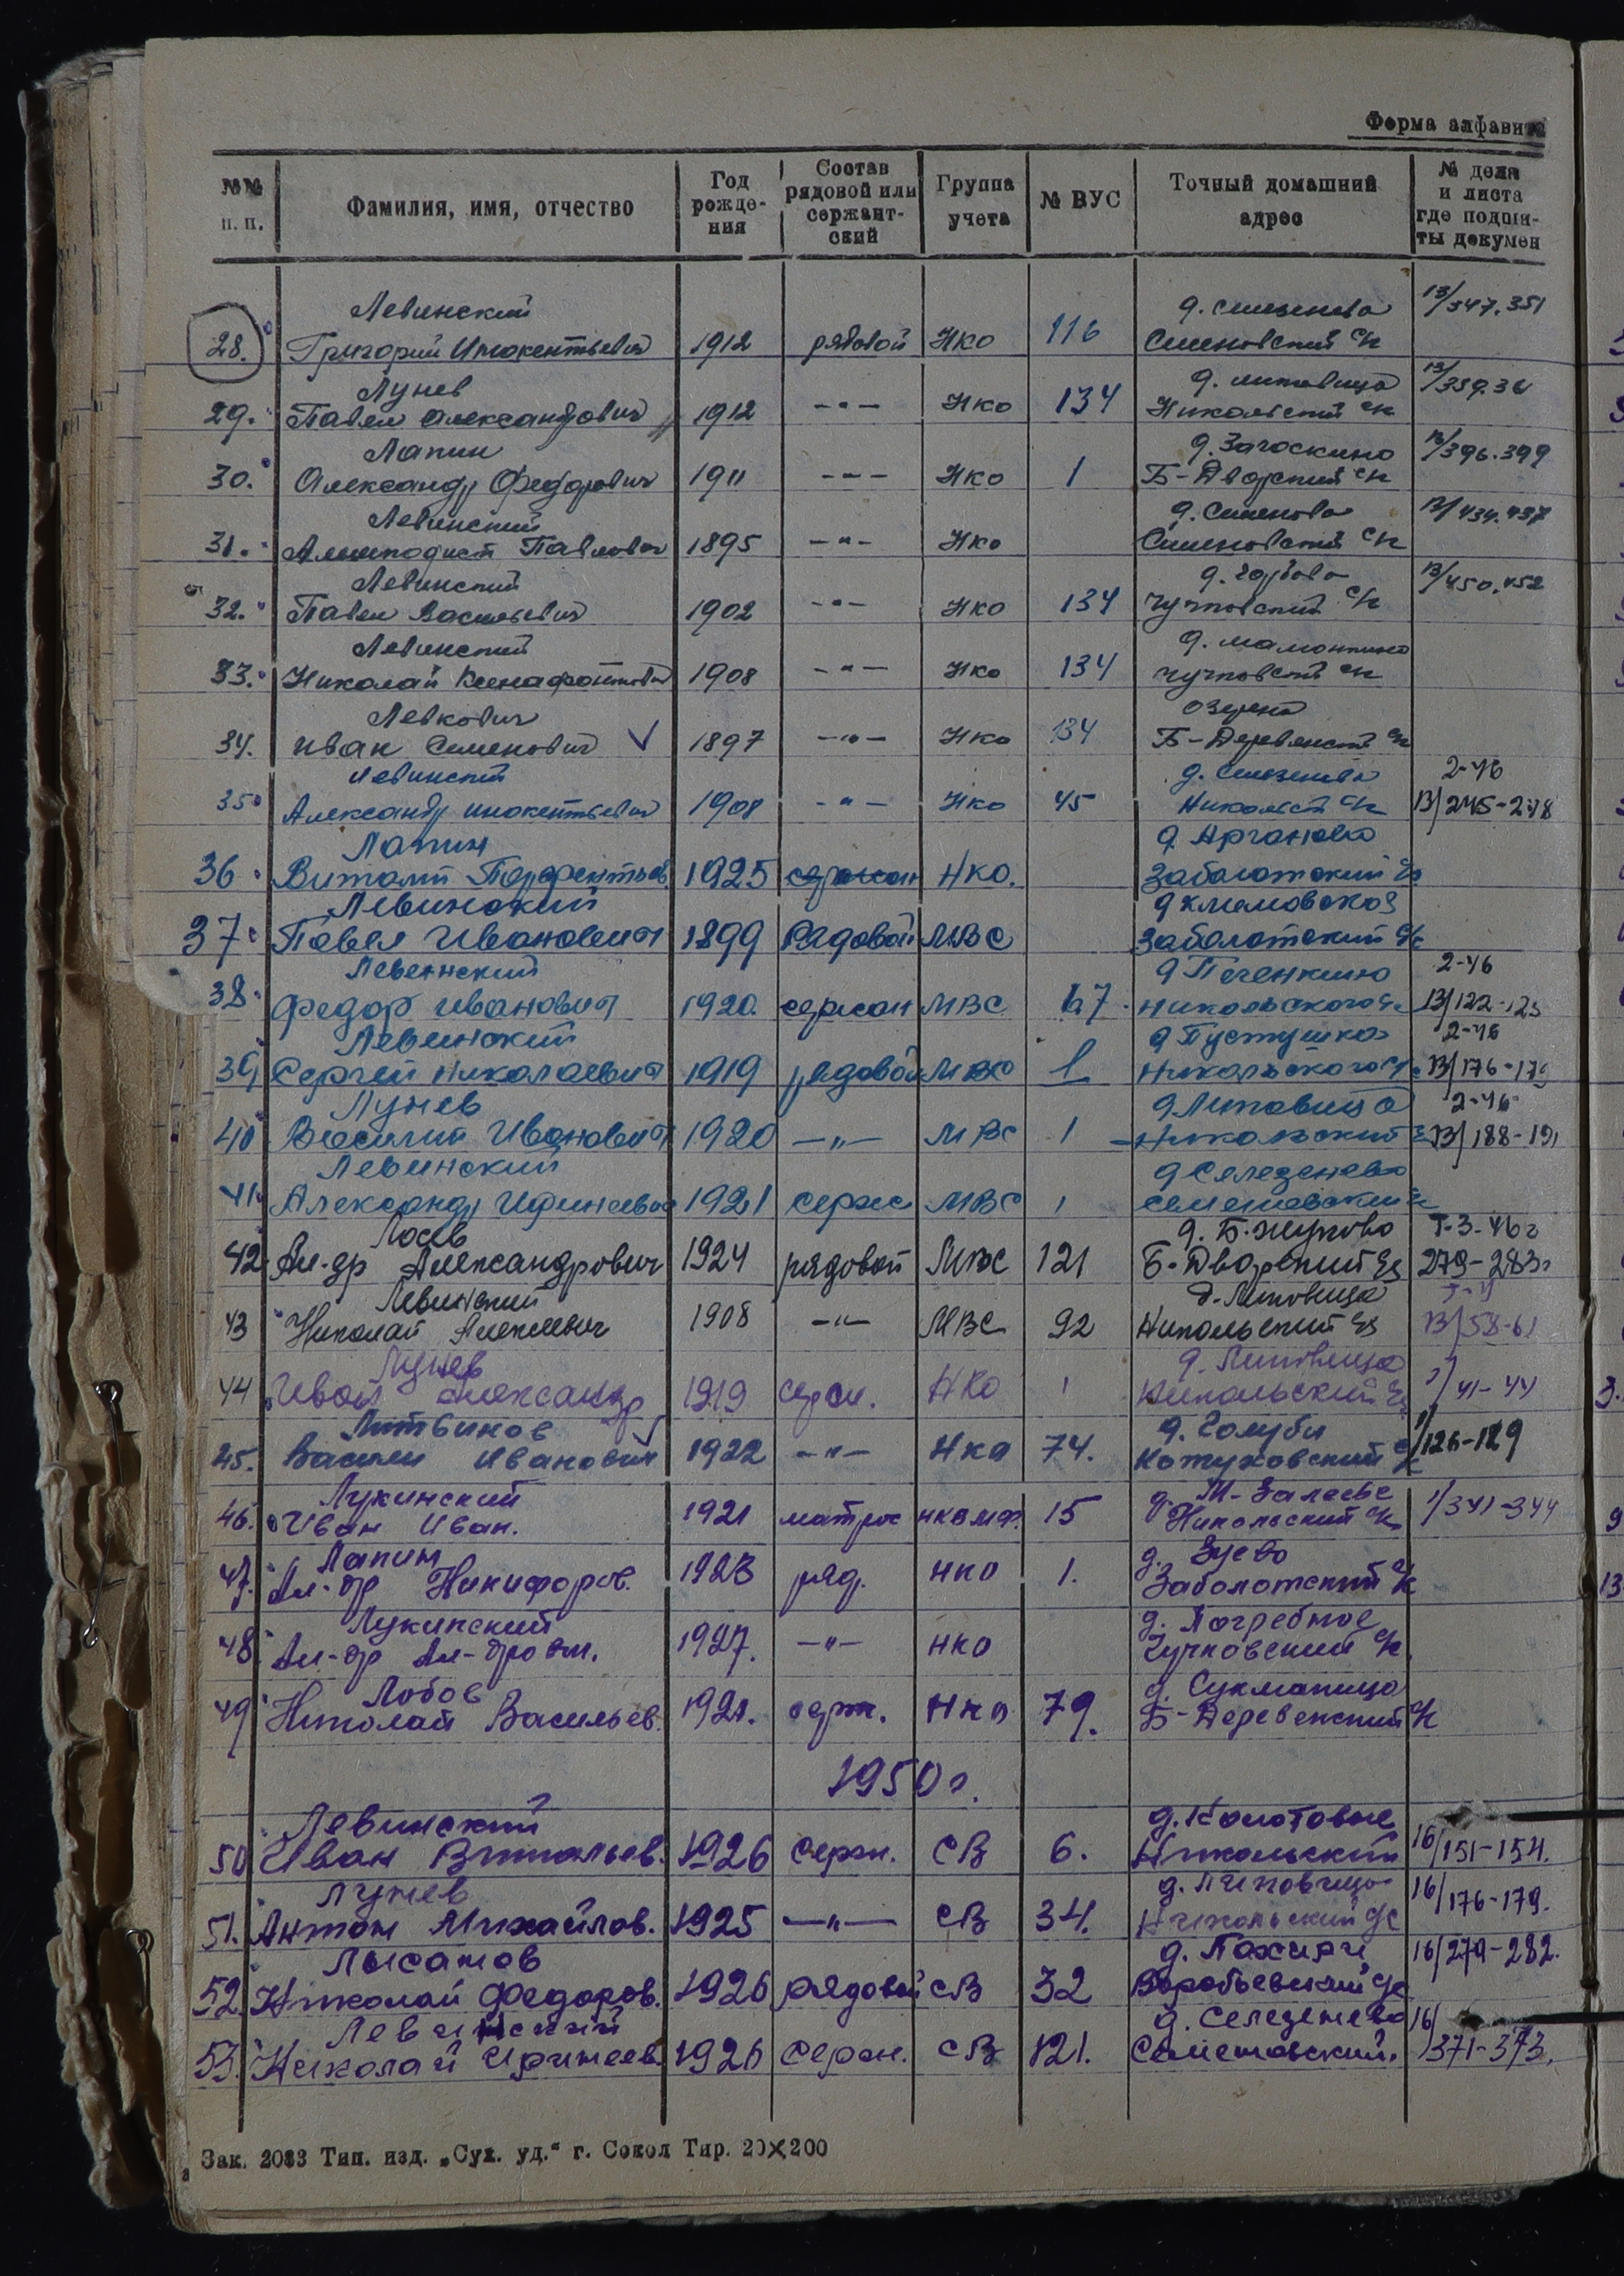 Форма алфавита
№№ п. п. Фамилия, имя, отчество Год рожде- ния Состав рядовой или сержант- ский Группа учета № ВУС Точный домашний адрес № дела и листа где подши- ты докумен
Левинский д. Селезнево 13/347.351
28. Григорий Инокентьевич 1912 рядовой НКО 116 Семеновский с/с
Лунев д. Липовица 13/359.36
29. Павел Александрович 1912 -"- НКО 134 Никольский с/с
Лапин д. Загоскино 13/396.399
30. Александр Федорович 1911 -"- НКО 1 Б-Дворский с/с
Левинский д. Семеново 13/434.437
31. Алимподист Павлович 1895 -"- НКО Семеновский с/с
Левинский д. Горбово 13/450.452
32. Павел Васильевич 1902 -"- НКО 134 Чучковский с/с
Левинский д. Мамонкино
33. Николай Ксенафонтович 1908 -"- НКО 134 Чучковский с/с
Левкович Озерко
34. Иван Семенович √ 1897 -"- НКО 134 Б-Деревенск с/с
Левинский д. Селезнево 2-46
35. Александр Инокентьевич 1908 -"- НКО 45 Никольск с/с 13/245-248
Лапин д Арганово
36. Виталий Парфентьев. 1925 сержан НКО. Заболотский с/с
Левинский
37. Павел Иванович 1899 Рядовой МВС Заболотский с/с
Левинский д Печенкино 2-46
38. Федор Иванович 1920. сержан МВС 67. Никольского с/с 13/122-125
Левинский д Пустушка 2-46
39 Сергей Николаевич 1919 рядовой МВС 1 Никольского с/с 13/176-179
Лунев д Липовица 2-46
40 Василий Иванович 1920 -"- МВС 1 Никольский с/с 13/188-191
Левинский д Селезенево
41. Александр Иринеевич 1921 серж МВС 1 Семеновский с/с
Лосев д. Б. Жуково 7-3-46г
42 Ал-др Александрович 1924 рядовой МВС 121 Б-Дворский с/с 279-283
Левинский д. Липовица
43 Николай Алексеевич 1908 -"- МВС 92 Никольский с/с 13/58-61
Лунев д. Липовица
44 Иван Александр 1919 серж. НКО 1 Никольский с/с 1/41-44
Литвинов √ д. Голуби
45. Василий Иванович 1922 -"- НКО 74. Кожуховский с/с 1/126-129
Лукинский д. М-Залесье
46. Иван Иван. 1921 матрос НКВМФ 15 Никольский с/с 1/341-344
Лапин д. Зуево
47. Ал-др Никифоров. 1923 ряд. НКО 1. Заболотский с/с
Лукинский д. Погребное
48. Ал-др Ал-дрович. 1927. -"- НКО Чучковский с/с
Лобов д. Сукманица
49 Николай Васильев. 1921. серж. НКО 79. Б-Деревенский с/с
1950г.
Левинский д. Колотовые
50 Иван Витальев. 1926 Серж. СВ 6. Никольский 16/151-154.
Лунев д. Липовица
51. Антон Михайлов. 1925 -"- СВ 34. Никольский с/с 16/176-179.
Лысанов
52 Николай Федоров. 1926 рядовой СВ 32 Воробьевский с/с 16/279-282.
Левинский д. Селезенево
53. Николай Иринеев. 1926 Серж. СВ 121. Семеновский. 16/371-373.
Зак. 2033 Тип. изд. „Сух. уд.“ г. Сокол Тир. 20×200